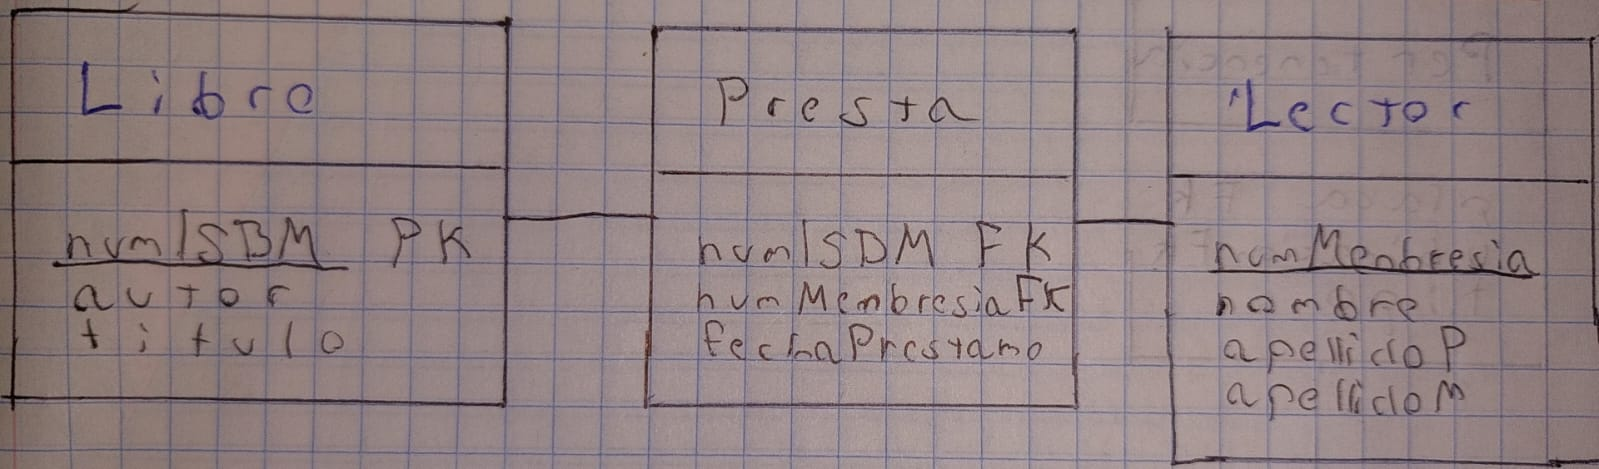 Libro
numISBM PK
autor
titulo
Presta
numISDM FK
numMenbresia FK
fechaPrestamo
Lector
numMenbresia
nombre
apellidoP
apellidoM